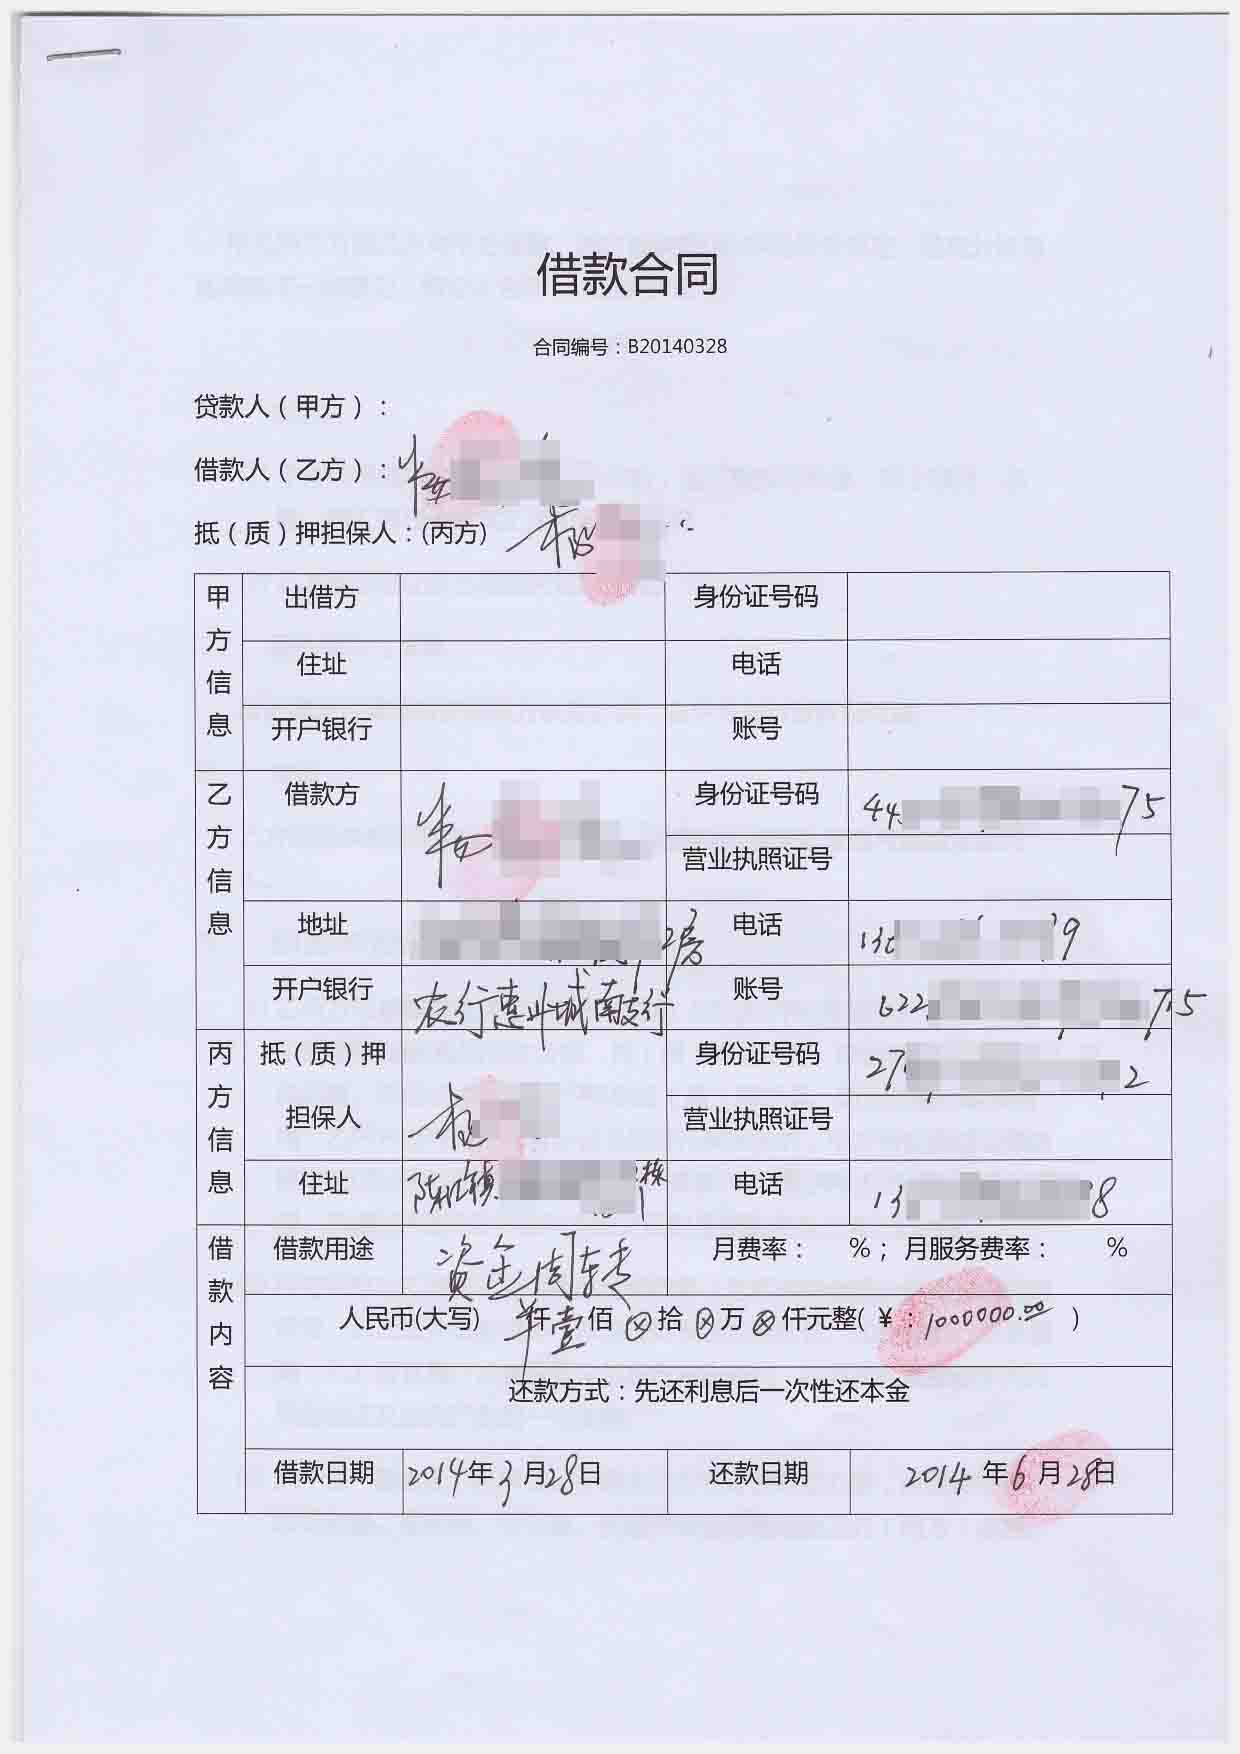 借款合同
合同编号：B20140328
贷款人（甲方）：
借款人（乙方）：
抵（质）押担保人：(丙方)
甲方信息
出借方 身份证号码
住址 电话
开户银行 账号
乙方信息
借款方 身份证号码 44 75
营业执照证号
地址 2房 电话 13 9
开户银行 农行惠州城南支行 账号 622 75
丙方信息
抵（质）押担保人 身份证号码 27 2
营业执照证号
住址 陈江镇 栋 电话 13 8
借款内容
借款用途 资金周转 月费率： %；月服务费率： %
人民币(大写) 仟壹佰⊗拾⊗万⊗仟元整(￥：1000000.00)
还款方式：先还利息后一次性还本金
借款日期 2014年3月28日 还款日期 2014年6月28日